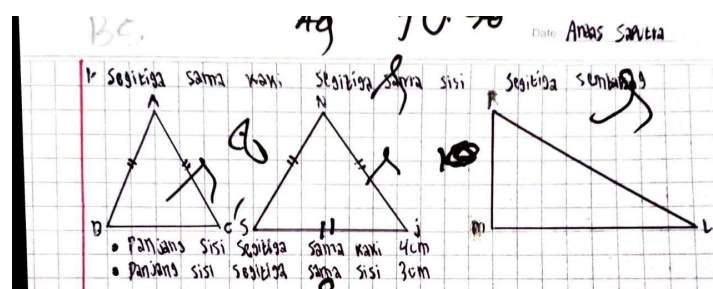 BS
Date: Andas Saputra
1. Segitiga sama kaki segitiga sama sisi segitiga sembarang
A N K
B C S J M L
• Panjang sisi segitiga sama kaki 4cm
• Panjang sisi segitiga sama sisi 3cm